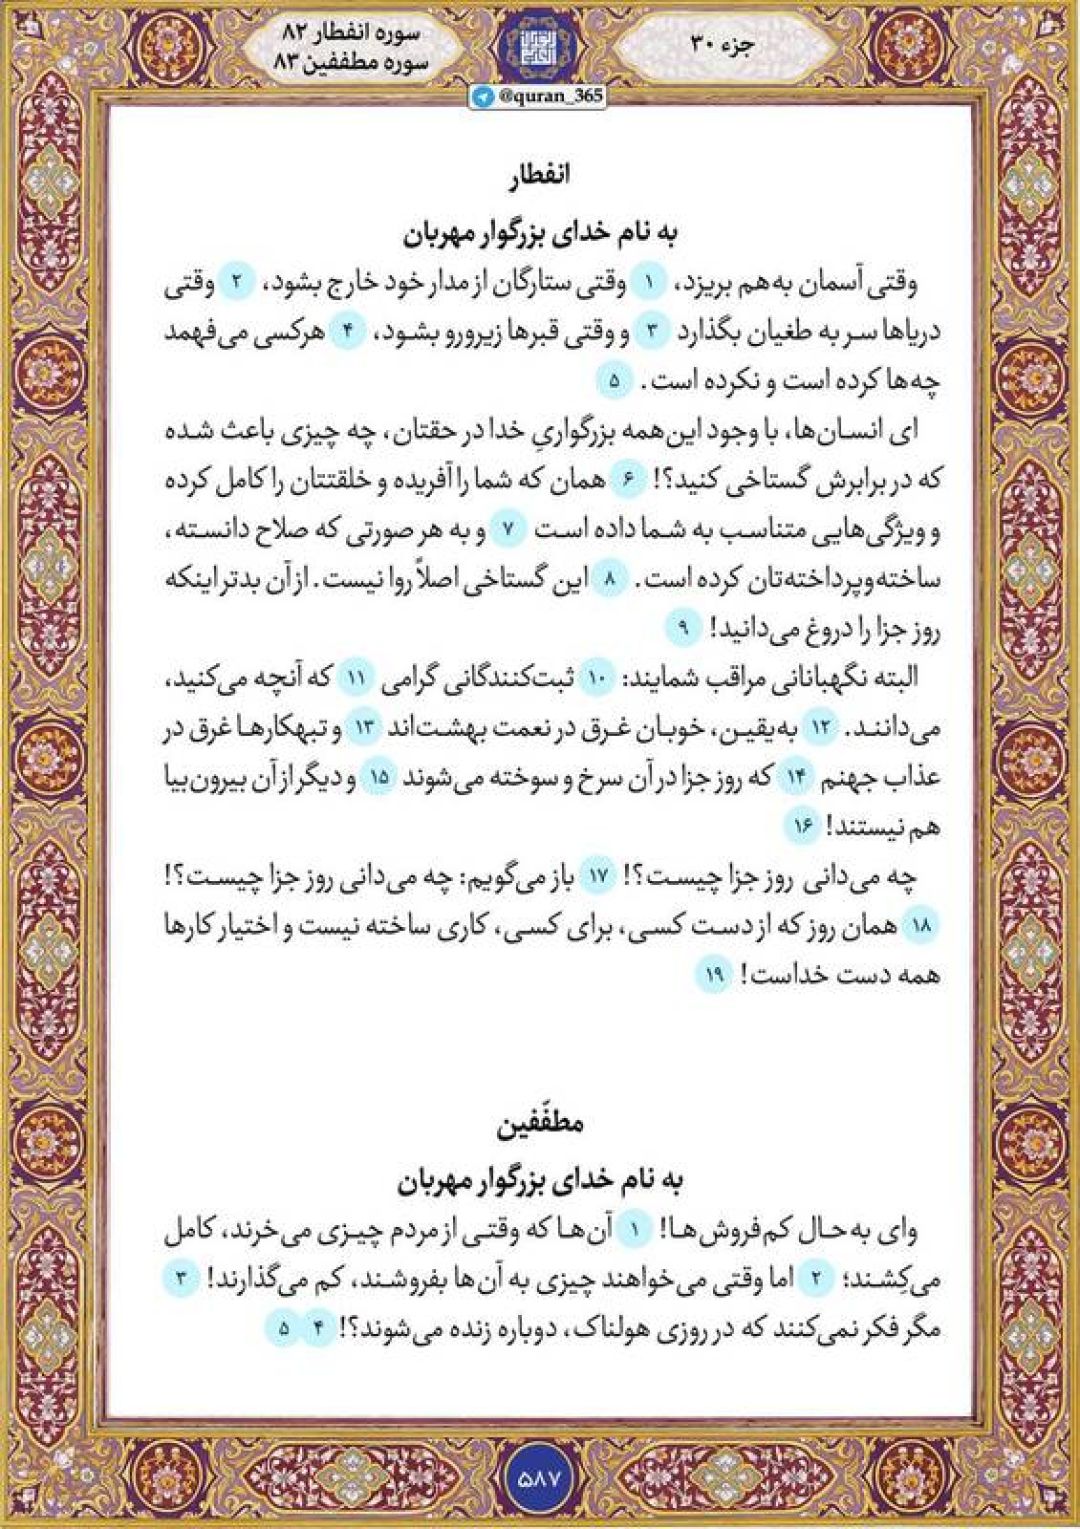 جزء ۳۰
سوره انفطار ۸۲
سوره مطففین ۸۳
@quran_365
انفطار
به نام خدای بزرگوار مهربان
وقتی آسمان به‌هم بریزد، ۱ وقتی ستارگان از مدار خود خارج بشود، ۲ وقتی
دریاها سر به طغیان بگذارد ۳ و وقتی قبرها زیرورو بشود، ۴ هرکسی می‌فهمد
چه‌ها کرده است و نکرده است. ۵
ای انسان‌ها، با وجود این‌همه بزرگواریِ خدا در حقتان، چه چیزی باعث شده
که در برابرش گستاخی کنید؟! ۶ همان که شما را آفریده و خلقتتان را کامل کرده
و ویژگی‌هایی متناسب به شما داده است ۷ و به هر صورتی که صلاح دانسته،
ساخته‌وپرداخته‌تان کرده است. ۸ این گستاخی اصلاً روا نیست. از آن بدتر اینکه
روز جزا را دروغ می‌دانید! ۹
البته نگهبانانی مراقب شمایند: ۱۰ ثبت‌کنندگانی گرامی ۱۱ که آنچه می‌کنید،
می‌دانند. ۱۲ به‌یقین، خوبان غرق در نعمت بهشت‌اند ۱۳ و تبهکارها غرق در
عذاب جهنم ۱۴ که روز جزا در آن سرخ و سوخته می‌شوند ۱۵ و دیگر از آن بیرون‌بیا
هم نیستند! ۱۶
چه می‌دانی روز جزا چیست؟! ۱۷ باز می‌گویم: چه می‌دانی روز جزا چیست؟!
۱۸ همان روز که از دست کسی، برای کسی، کاری ساخته نیست و اختیار کارها
همه دست خداست! ۱۹
مطفّفین
به نام خدای بزرگوار مهربان
وای به حال کم‌فروش‌ها! ۱ آن‌ها که وقتی از مردم چیزی می‌خرند، کامل
می‌کِشند؛ ۲ اما وقتی می‌خواهند چیزی به آن‌ها بفروشند، کم می‌گذارند! ۳
مگر فکر نمی‌کنند که در روزی هولناک، دوباره زنده می‌شوند؟! ۴ ۵
۵۸۷